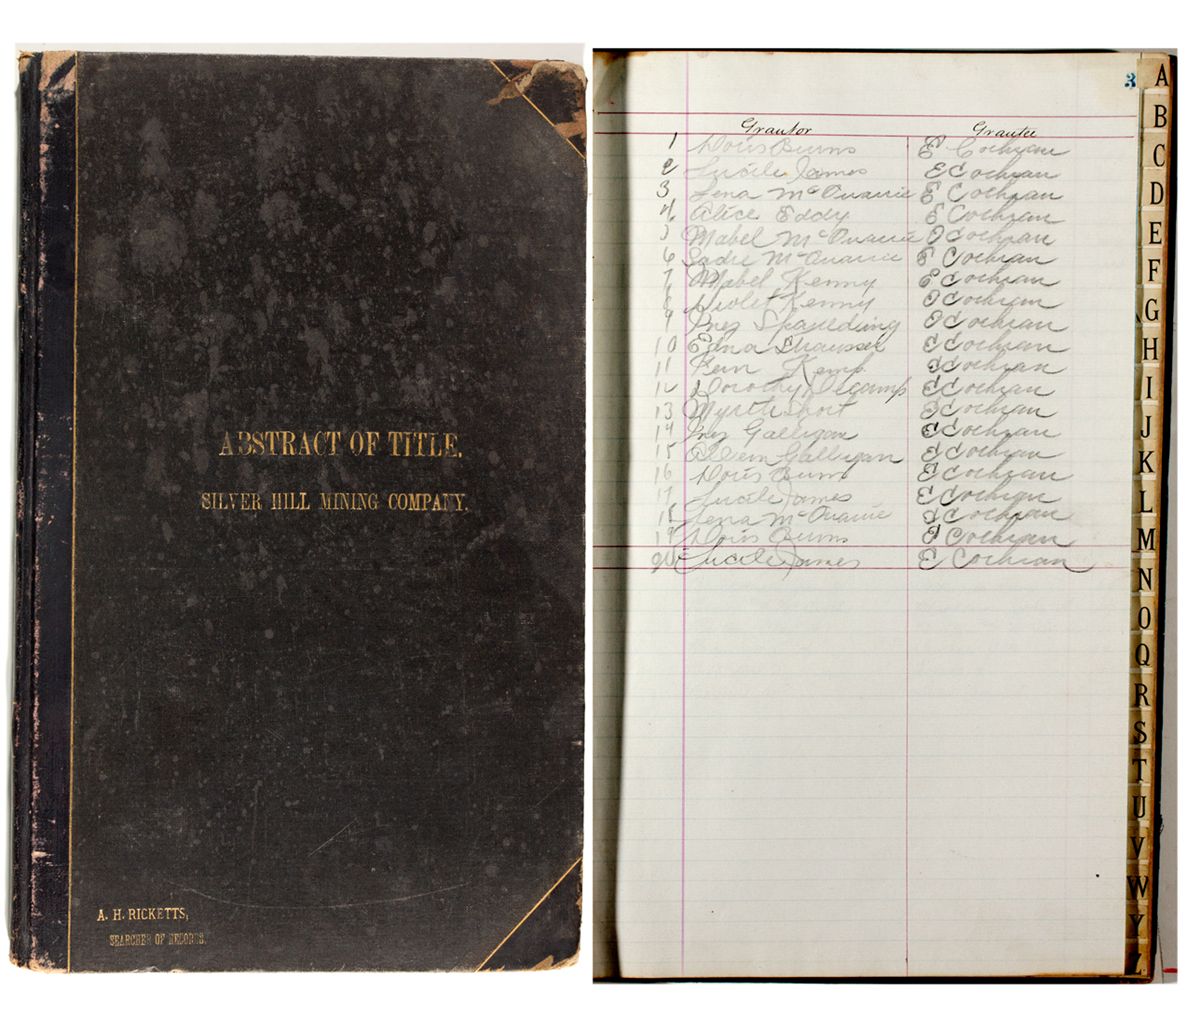 ABSTRACT OF TITLE.
SILVER HILL MINING COMPANY.
A. H. RICKETTS,
SEARCHER OF RECORDS.
3
Grantor Grantee
1 Doris Burns E Cochran
2 Lucile James E Cochran
3 Lena McQuarrie E Cochran
4 Alice Eddy E Cochran
5 Mabel McQuarrie E Cochran
6 Sadie McQuarrie E Cochran
7 Mabel Kenny E Cochran
8 Violet Kenny E Cochran
9 Inez Spaulding E Cochran
10 Edna Strausser E Cochran
11 Fern Kemp E Cochran
12 Dorothy Decamp E Cochran
13 Myrtle Short E Cochran
14 Inez Galligan E Cochran
15 Galligan E Cochran
16 Doris Burns E Cochran
17 Lucile James E Cochran
18 Lena McQuarrie E Cochran
19 Doris Burns E Cochran
20 Lucile James E Cochran
A
B
C
D
E
F
G
H
I
J
K
L
M
N
O
Q
R
S
T
U
V
W
Y
Z